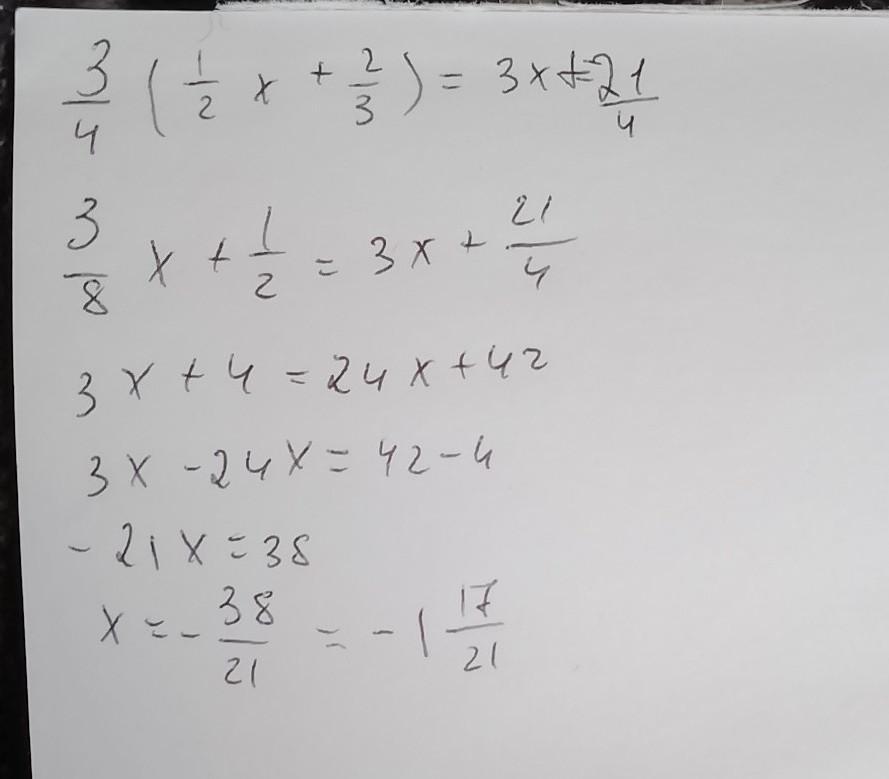 3/4 (1/2 x + 2/3) = 3x + 21/4
3/8 x + 1/2 = 3x + 21/4
3x + 4 = 24x + 42
3x - 24x = 42 - 4
- 21x = 38
x = - 38/21 = - 1 17/21